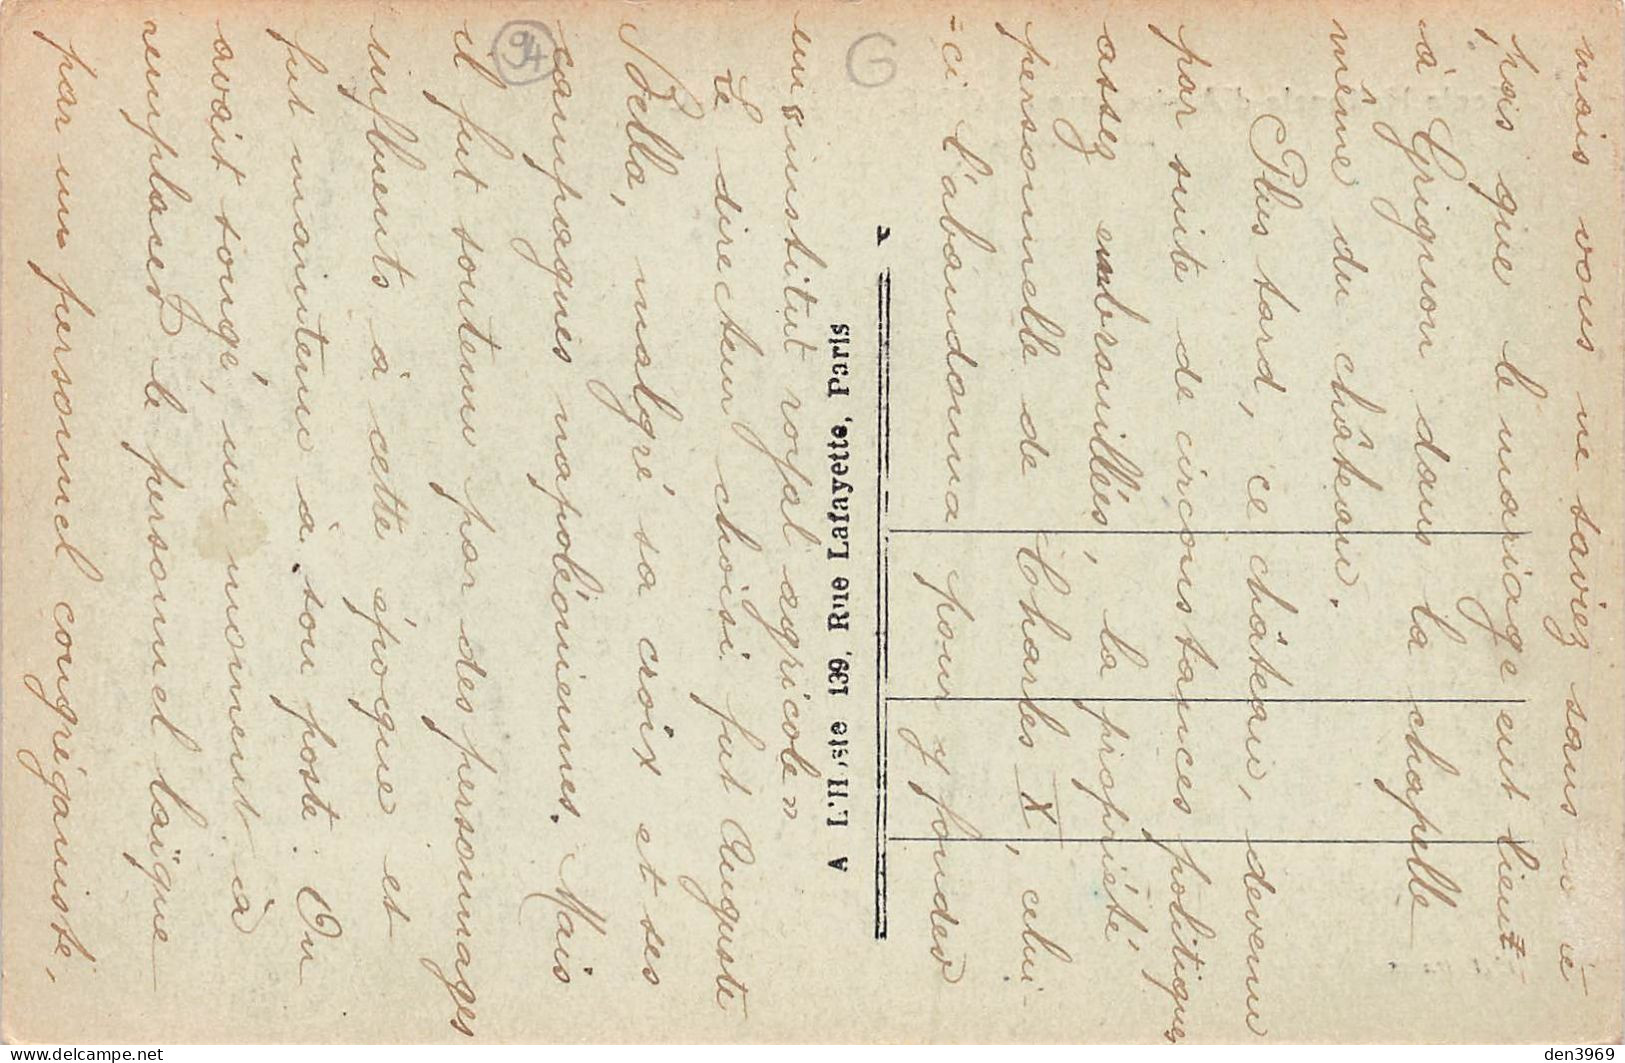 mais vous ne saviez sans
pas que le mariage eut lieu
à Grignon dans la chapelle
même du château.
Plus tard, ce château, devenu
par suite de circonstances politiques
assez embrouillées, la propriété
personnelle de Charles X, celui-
-ci l'abandonna pour y fonder
un institut royal agricole"
Le directeur choisi fut Auguste
Bella, malgré sa croix et ses
campagnes napoléoniennes. Mais
il fut soutenu par des personnages
influents à cette époque et
fut maintenu à son poste. On
avait songé, un moment à
remplacer le personnel laïque
par un personnel congréganiste,
A L'Hoste 139, Rue Lafayette, Paris
94
G
den3969